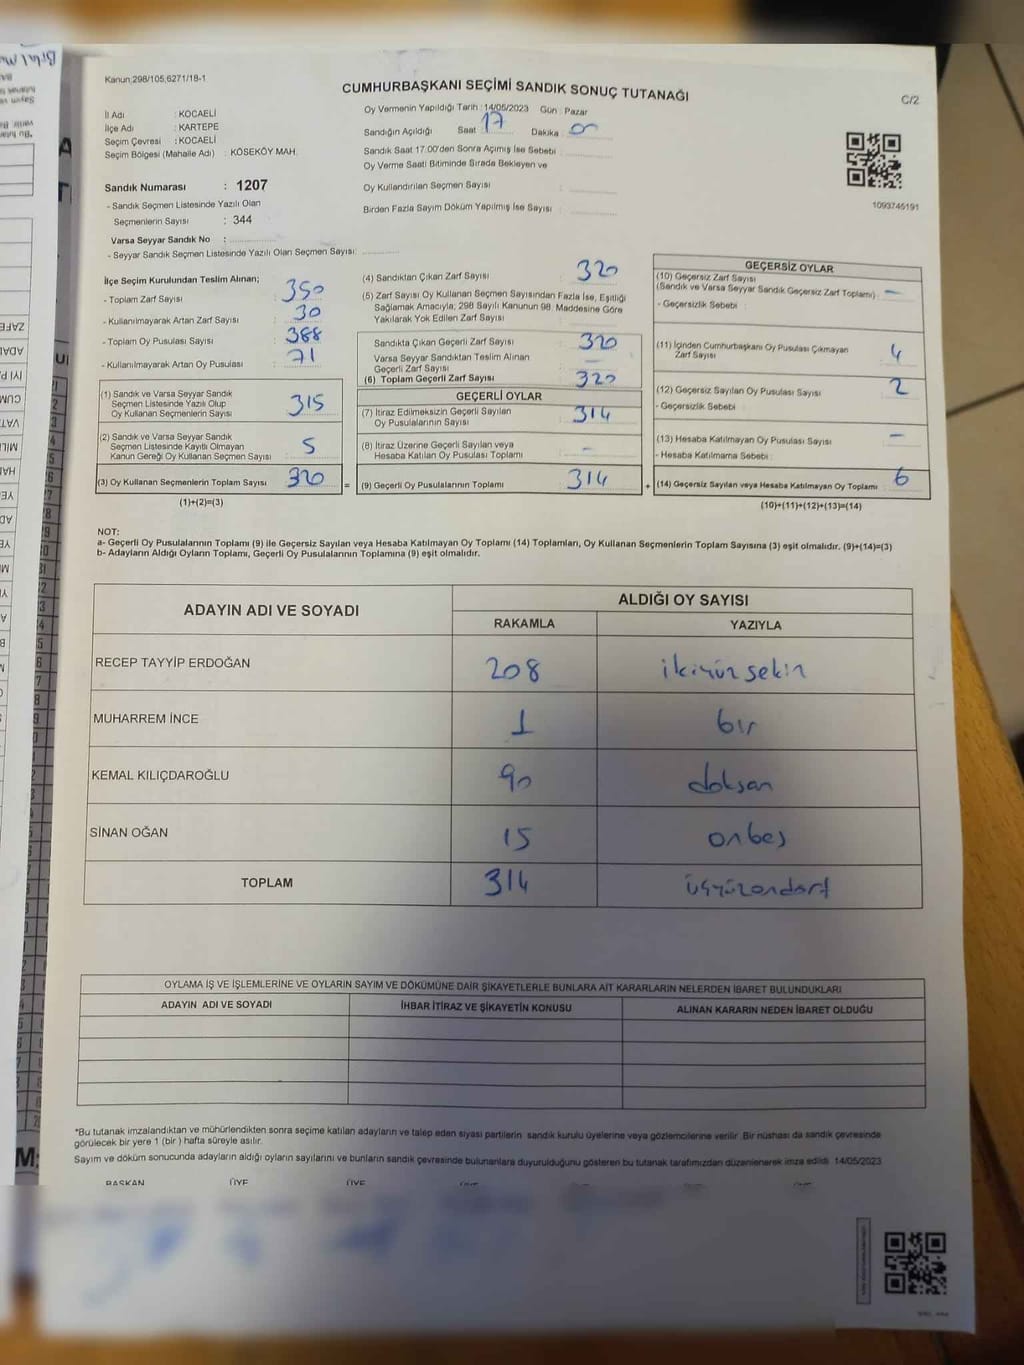 Kanun:298/105,6271/18-1
CUMHURBAŞKANI SEÇİMİ SANDIK SONUÇ TUTANAĞI
C/2
İl Adı : KOCAELİ
İlçe Adı : KARTEPE
Seçim Çevresi : KOCAELİ
Seçim Bölgesi (Mahalle Adı) : KÖSEKÖY MAH.
Sandık Numarası : 1207
- Sandık Seçmen Listesinde Yazılı Olan
Seçmenlerin Sayısı : 344
Varsa Seyyar Sandık No :
- Seyyar Sandık Seçmen Listesinde Yazılı Olan Seçmen Sayısı:
Oy Vermenin Yapıldığı Tarih : 14/05/2023 Gün : Pazar
Sandığın Açıldığı Saat : 17 Dakika : 00
Sandık Saat 17.00'den Sonra Açımış İse Sebebi :
Oy Verme Saati Bitiminde Sırada Bekleyen ve
Oy Kullandırılan Seçmen Sayısı :
Birden Fazla Sayım Döküm Yapılmış İse Sayısı :
1093745191
İlçe Seçim Kurulundan Teslim Alınan;
- Toplam Zarf Sayısı : 350
- Kullanılmayarak Artan Zarf Sayısı : 30
- Toplam Oy Pusulası Sayısı : 388
- Kullanılmayarak Artan Oy Pusulası : 71
(1) Sandık ve Varsa Seyyar Sandık
Seçmen Listesinde Yazılı Olup
Oy Kullanan Seçmenlerin Sayısı : 315
(2) Sandık ve Varsa Seyyar Sandık
Seçmen Listesinde Kayıtlı Olmayan
Kanun Gereği Oy Kullanan Seçmen Sayısı : 5
(3) Oy Kullanan Seçmenlerin Toplam Sayısı : 320 =
(1)+(2)=(3)
(4) Sandıktan Çıkan Zarf Sayısı : 320
(5) Zarf Sayısı Oy Kullanan Seçmen Sayısından Fazla İse, Eşitliği
Sağlamak Amacıyla; 298 Sayılı Kanunun 98. Maddesine Göre
Yakılarak Yok Edilen Zarf Sayısı :
Sandıkta Çıkan Geçerli Zarf Sayısı : 320
Varsa Seyyar Sandıktan Teslim Alınan
Geçerli Zarf Sayısı : —
(6) Toplam Geçerli Zarf Sayısı : 320
GEÇERLİ OYLAR
(7) İtiraz Edilmeksizin Geçerli Sayılan
Oy Pusulasının Sayısı : 314
(8) İtiraz Üzerine Geçerli Sayılan veya
Hesaba Katılan Oy Pusulası Toplamı : -
(9) Geçerli Oy Pusulalarının Toplamı : 314 +
GEÇERSİZ OYLAR
(10) Geçersiz Zarf Sayısı
(Sandık ve Varsa Seyyar Sandık Geçersiz Zarf Toplamı) : —
- Geçersizlik Sebebi :
(11) İçinden Cumhurbaşkanı Oy Pusulası Çıkmayan
Zarf Sayısı : 4
(12) Geçersiz Sayılan Oy Pusulası Sayısı : 2
- Geçersizlik Sebebi :
(13) Hesaba Katılmayan Oy Pusulası Sayısı : —
- Hesaba Katılmama Sebebi :
(14) Geçersiz Sayılan veya Hesaba Katılmayan Oy Toplamı : 6
(10)+(11)+(12)+(13)=(14)
NOT:
a- Geçerli Oy Pusulalarının Toplamı (9) ile Geçersiz Sayılan veya Hesaba Katılmayan Oy Toplamı (14) Toplamları, Oy Kullanan Seçmenlerin Toplam Sayısına (3) eşit olmalıdır. (9)+(14)=(3)
b- Adayların Aldığı Oyların Toplamı, Geçerli Oy Pusulalarının Toplamına (9) eşit olmalıdır.
ADAYIN ADI VE SOYADI
ALDIĞI OY SAYISI
RAKAMLA YAZIYLA
RECEP TAYYİP ERDOĞAN 208 ikiyüz sekiz
MUHARREM İNCE 1 bir
KEMAL KILIÇDAROĞLU 90 doksan
SİNAN OĞAN 15 onbeş
TOPLAM 314 üçyüzondört
OYLAMA İŞ VE İŞLEMLERİNE VE OYLARIN SAYIM VE DÖKÜMÜNE DAİR ŞİKAYETLERLE BUNLARA AİT KARARLARIN NELERDEN İBARET BULUNDUKLARI
ADAYIN ADI VE SOYADI İHBAR İTİRAZ VE ŞİKAYETİN KONUSU ALINAN KARARIN NEDEN İBARET OLDUĞU
*Bu tutanak imzalandıktan ve mühürlendikten sonra seçime katılan adayların ve talep eden siyasi partilerin sandık kurulu üyelerine veya gözlemcilerine verilir. Bir nüshası da sandık çevresinde
görülecek bir yere 1 (bir) hafta süreyle asılır.
Sayım ve döküm sonucunda adayların aldığı oyların sayılarını ve bunların sandık çevresinde bulunanlara duyurulduğunu gösteren bu tutanak tarafımızdan düzenlenerek imza edildi. 14/05/2023
BAŞKAN ÜYE ÜYE